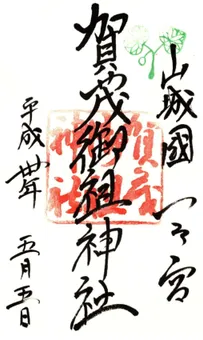 山城國一之宮
賀茂御祖神社
平成卅年 五月五日
賀茂
御祖
神社